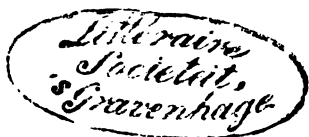 Litteraire
Societeit,
's Gravenhage